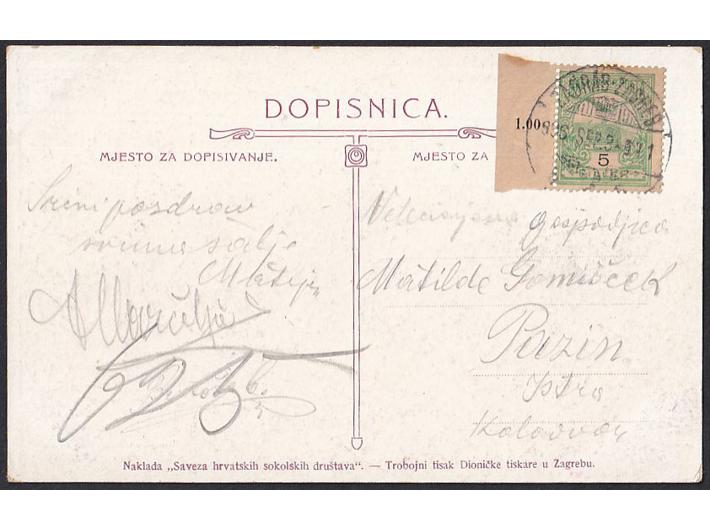 DOPISNICA.
MJESTO ZA DOPISIVANJE.
MJESTO ZA
1.00
ZÁGRÁB-ZAGREB
5
Srčni pozdrav
svima šalje
Matija
Velecijenjena Gospodjica
Matilde Gomišček
Pazin
Istra
Kolodvor
Naklada „Saveza hrvatskih sokolskih društava“. — Trobojni tisak Dioničke tiskare u Zagrebu.